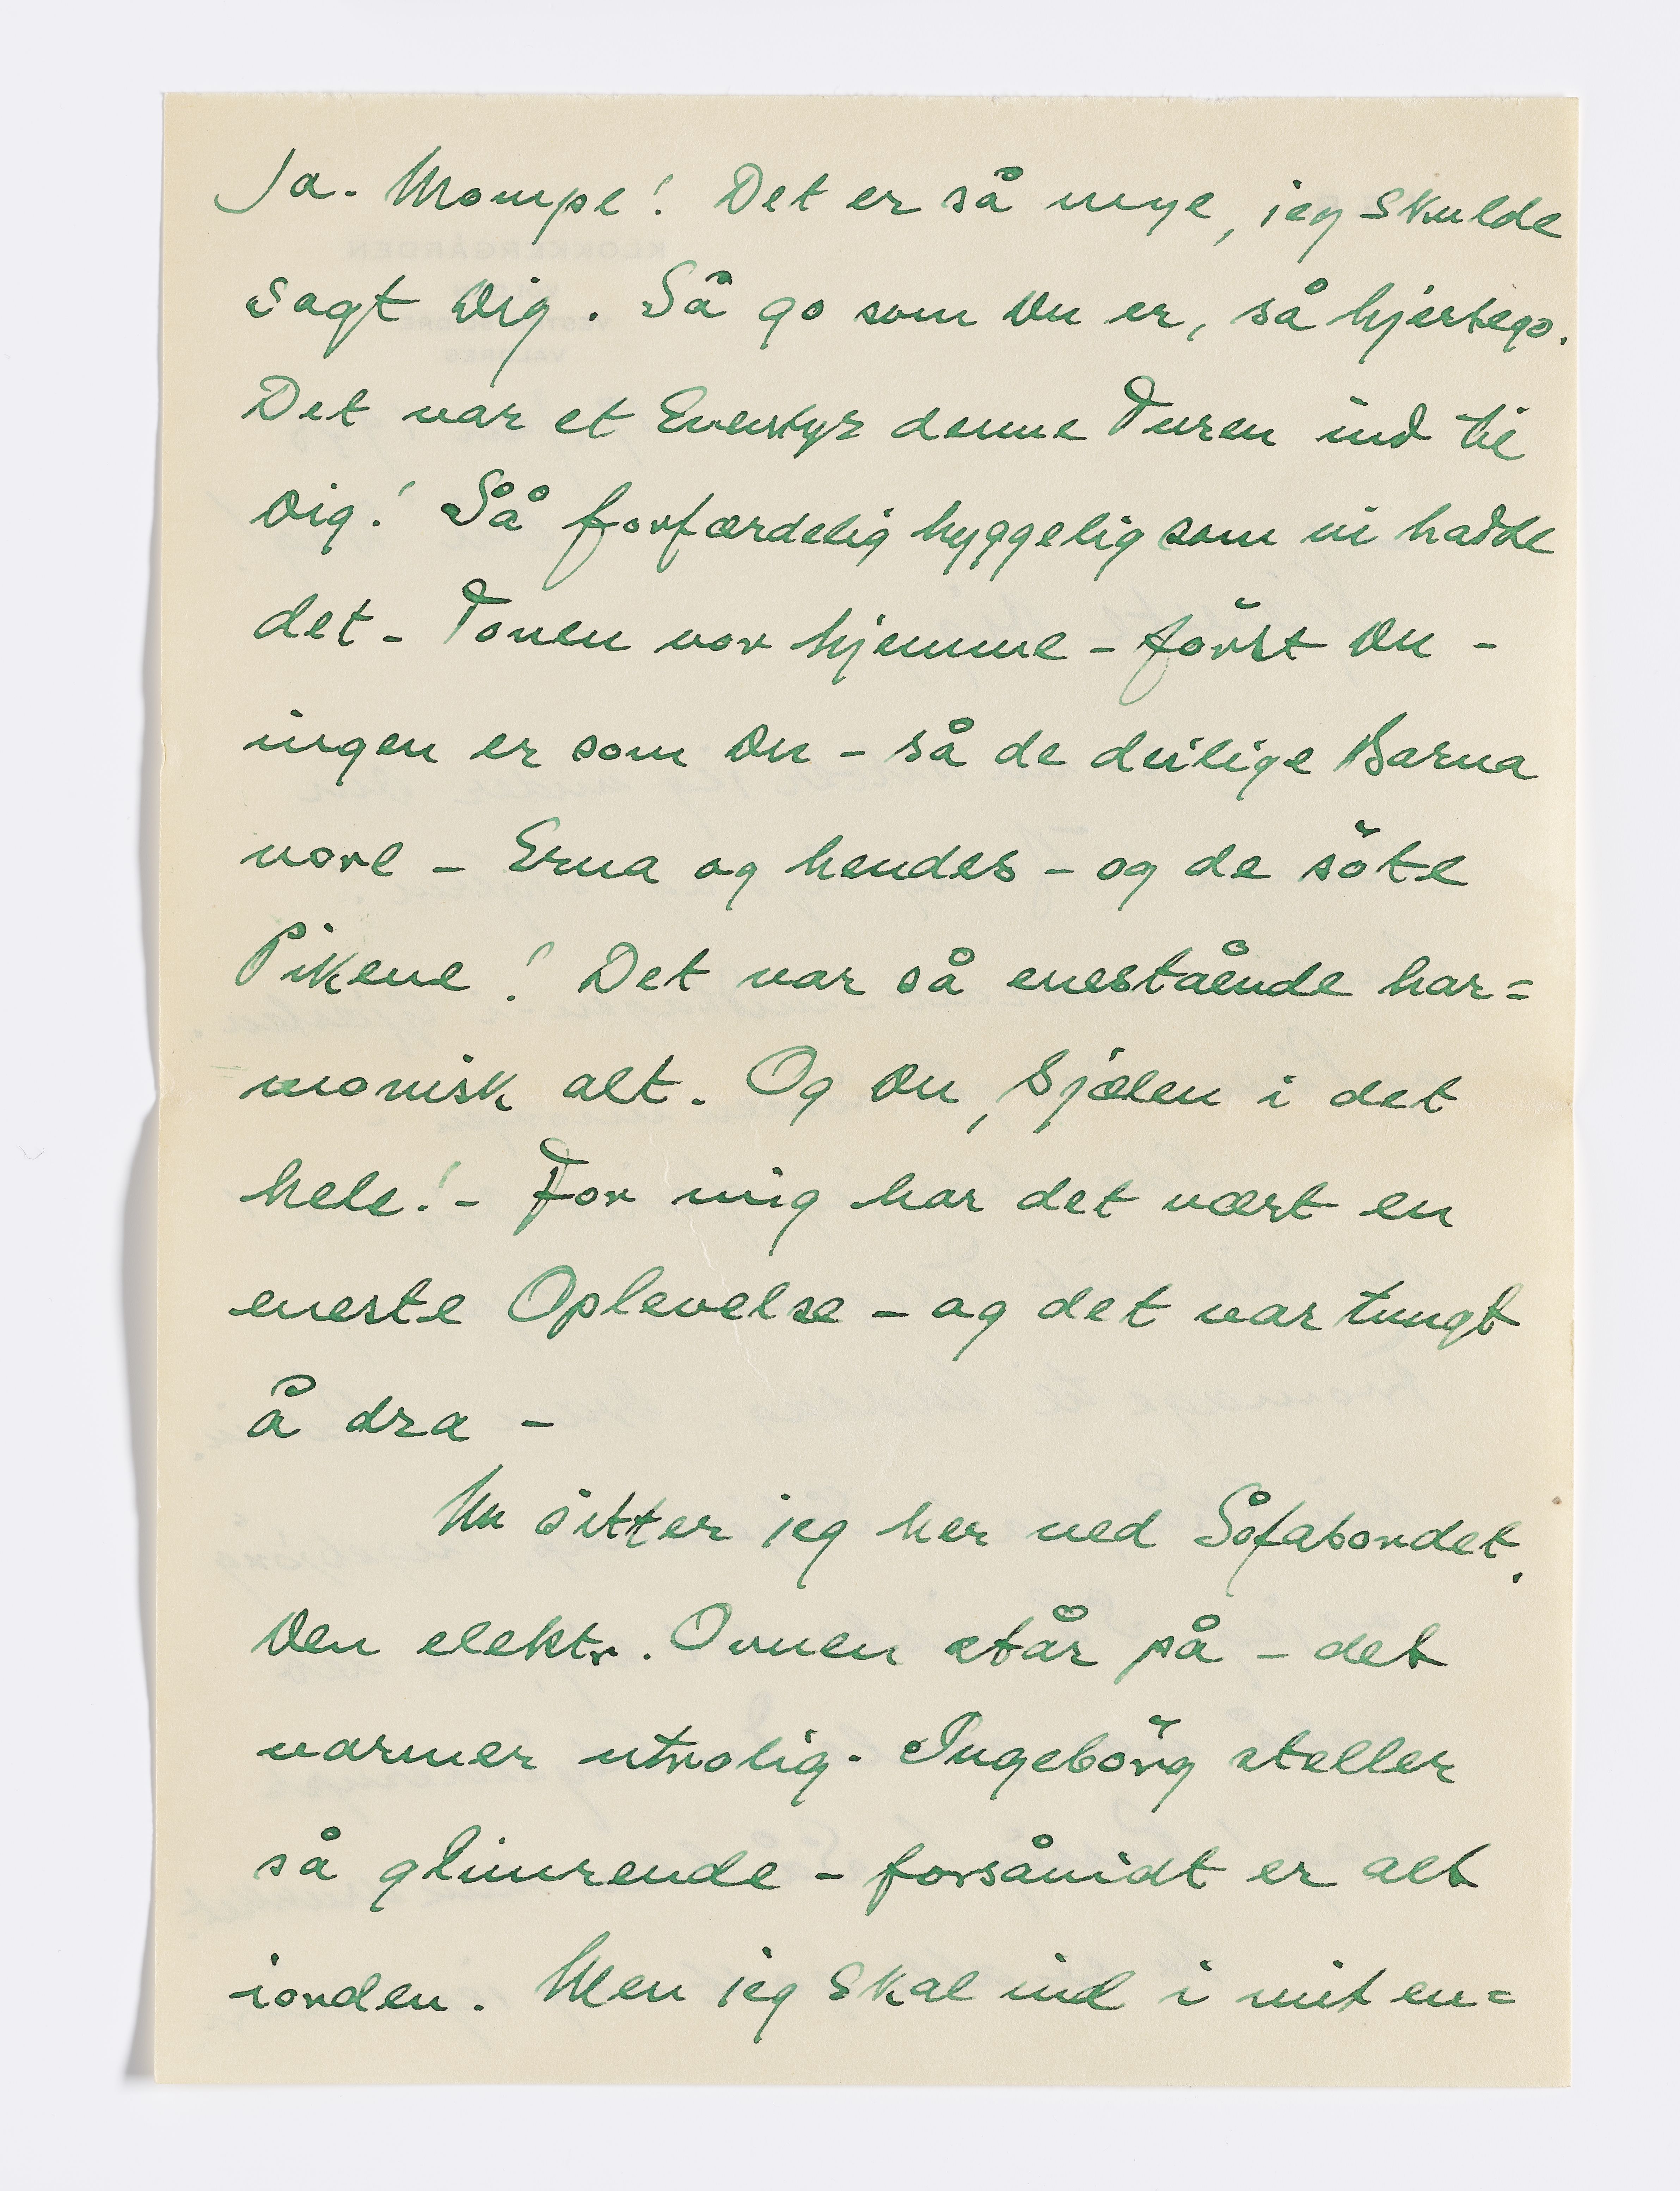 Ja. Mompe! Det er så mye, jeg skulde
sagt Dig. Så go som Du er, så hjertego.
Det var et Eventyr denne Turen ind til
Dig! Så forfærdelig hyggelig som vi hadde
det - Tonen vor hjemme - først Du -
ingen er som Du - så de deilige Barna
vore - Erna og hendes - og de søte
Pikene! Det var så enestående har=
monisk alt. Og Du, Sjælen i det
hele! - For mig har det vært en
eneste Oplevelse - og det var tungt
å dra -
Nu sitter jeg her ved Sofabordet.
Den elektr. Ovnen står på - det
varmer utrolig. Ingebörg steller
så glimrende - forsåvidt er alt
iorden. Men jeg skal ind i mit en=